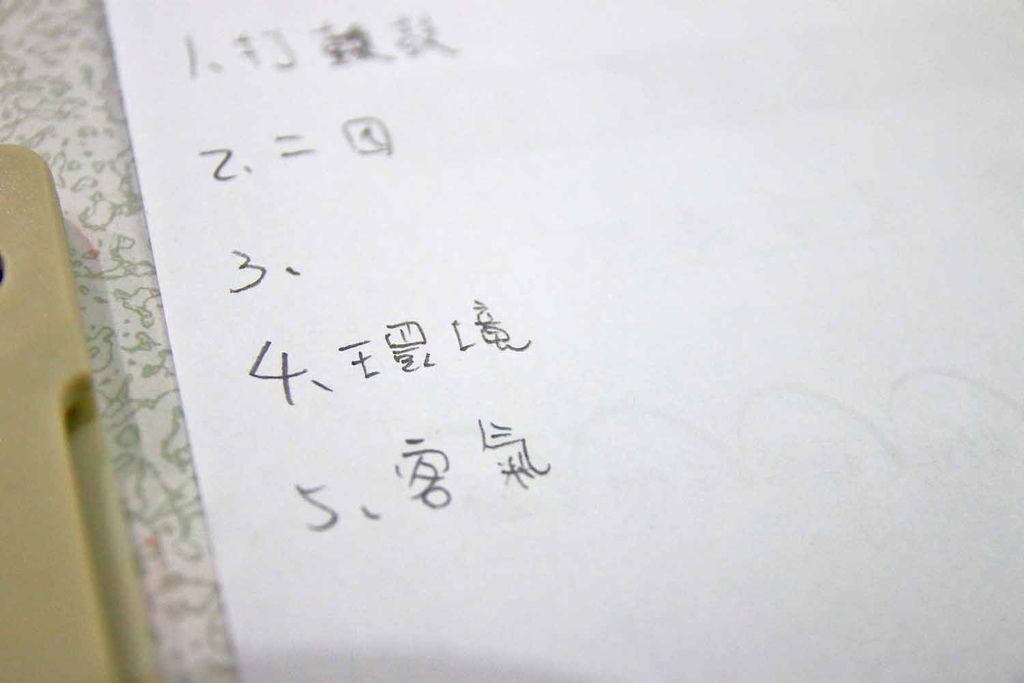 1、打
2、二四
3、
4、環境
5、客氣